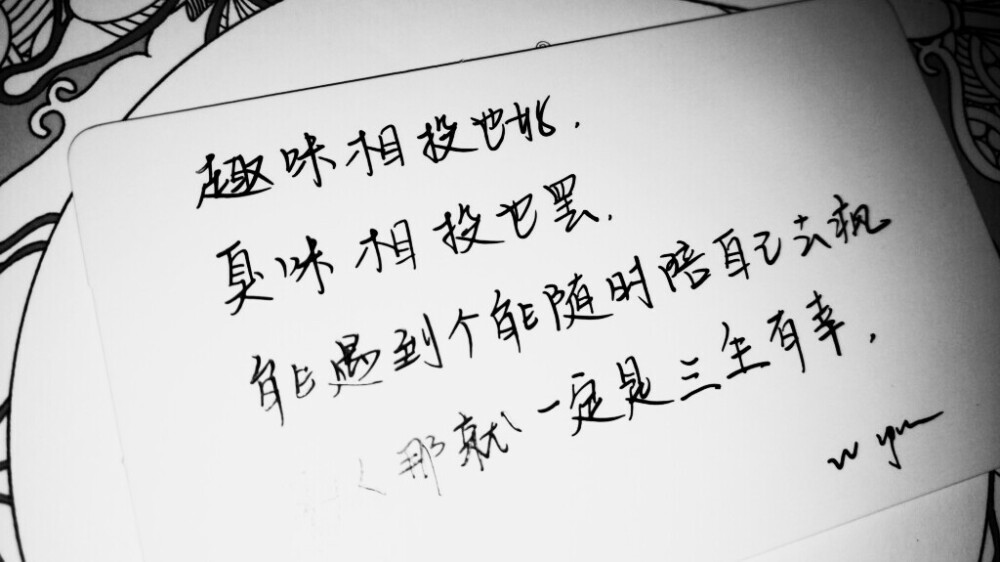 趣味相投也好.
臭味相投也罢.
能遇到个能随时陪自己去
人那就一定是三生有幸,